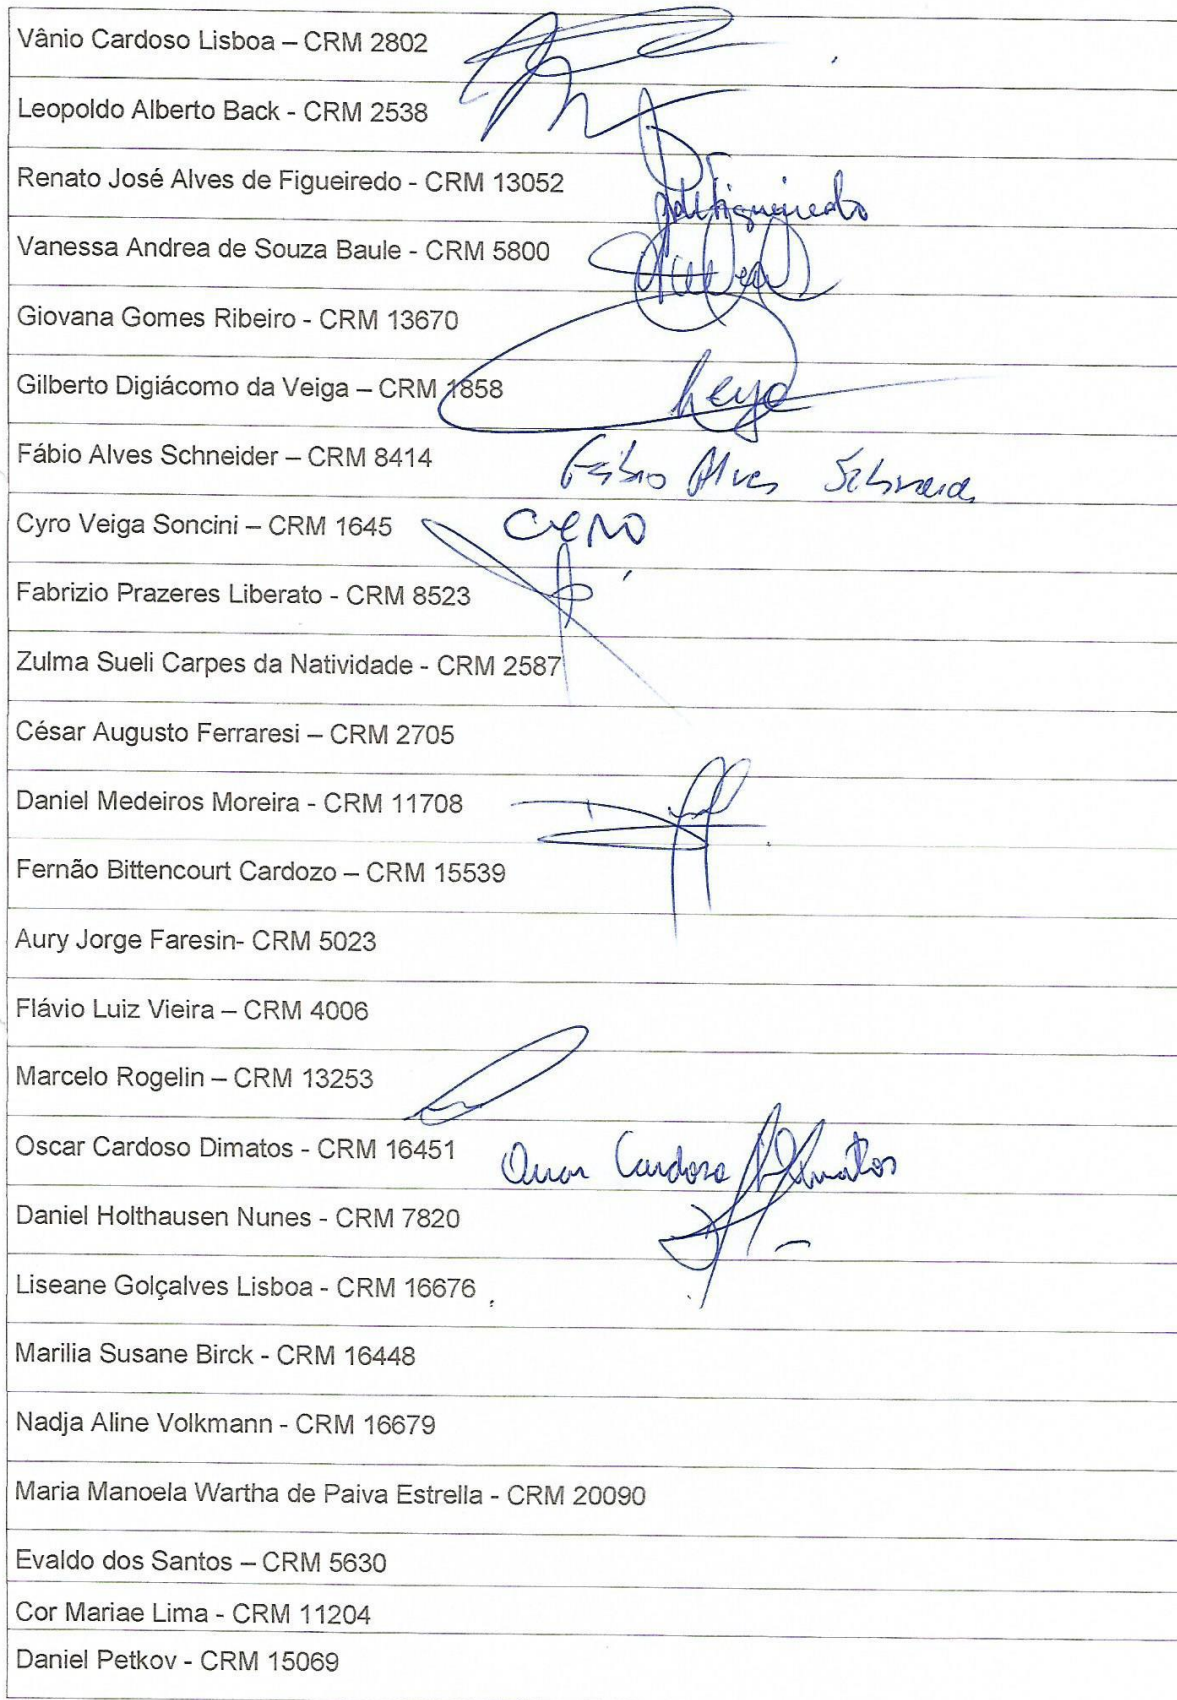 Vânio Cardoso Lisboa – CRM 2802
Leopoldo Alberto Back - CRM 2538
Renato José Alves de Figueiredo - CRM 13052
Figueiredo
Vanessa Andrea de Souza Baule - CRM 5800
Giovana Gomes Ribeiro - CRM 13670
Gilberto Digiácomo da Veiga – CRM 1858
Fábio Alves Schneider – CRM 8414 Fábio Alves Schneider
Cyro Veiga Soncini – CRM 1645 CYRO
Fabrizio Prazeres Liberato - CRM 8523
Zulma Sueli Carpes da Natividade - CRM 2587
César Augusto Ferraresi – CRM 2705
Daniel Medeiros Moreira - CRM 11708
Fernão Bittencourt Cardozo – CRM 15539
Aury Jorge Faresin- CRM 5023
Flávio Luiz Vieira – CRM 4006
Marcelo Rogelin – CRM 13253
Oscar Cardoso Dimatos - CRM 16451 Oscar Cardoso Dimatos
Daniel Holthausen Nunes - CRM 7820
Liseane Golçalves Lisboa - CRM 16676
Marilia Susane Birck - CRM 16448
Nadja Aline Volkmann - CRM 16679
Maria Manoela Wartha de Paiva Estrella - CRM 20090
Evaldo dos Santos – CRM 5630
Cor Mariae Lima - CRM 11204
Daniel Petkov - CRM 15069